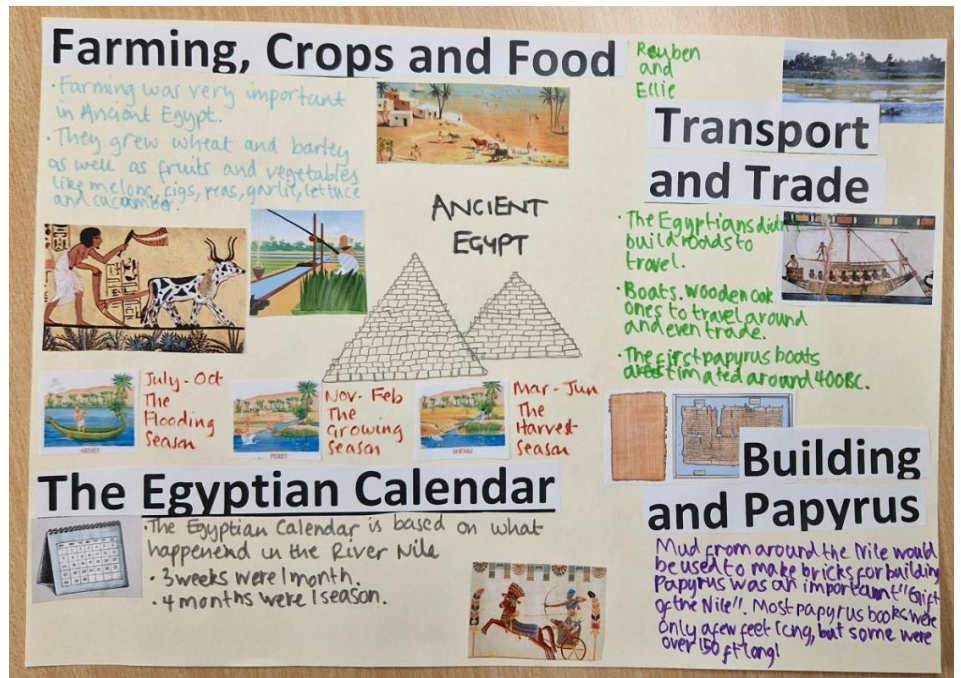 Farming, Crops and Food
• Farming was very important
in Ancient Egypt.
• They grew wheat and barley
as well as fruits and vegetables
like melons, figs, peas, garlic, lettuce
and cucumber.
Reuben
and
Ellie
Transport
and Trade
• The Egyptians didn't
build roads to
travel.
• Boats. Wooden oak
ones to travel around
and even trade.
• The first papyrus boats
estimated around 400BC.
ANCIENT
EGYPT
July-Oct
The
Flooding
Season
Nov-Feb
The
Growing
Season
Mar-Jun
The
Harvest
Season
AKHET
PERET
SHEMU
The Egyptian Calendar
• The Egyptian Calendar is based on what
happenend in the River Nile
• 3 weeks were 1 month.
• 4 months were 1 season.
Building
and Papyrus
Mud from around the Nile would
be used to make bricks for building
Papyrus was an important "Gift
of the Nile". Most papyrus books were
only a few feet long, but some were
over 150 ft long!